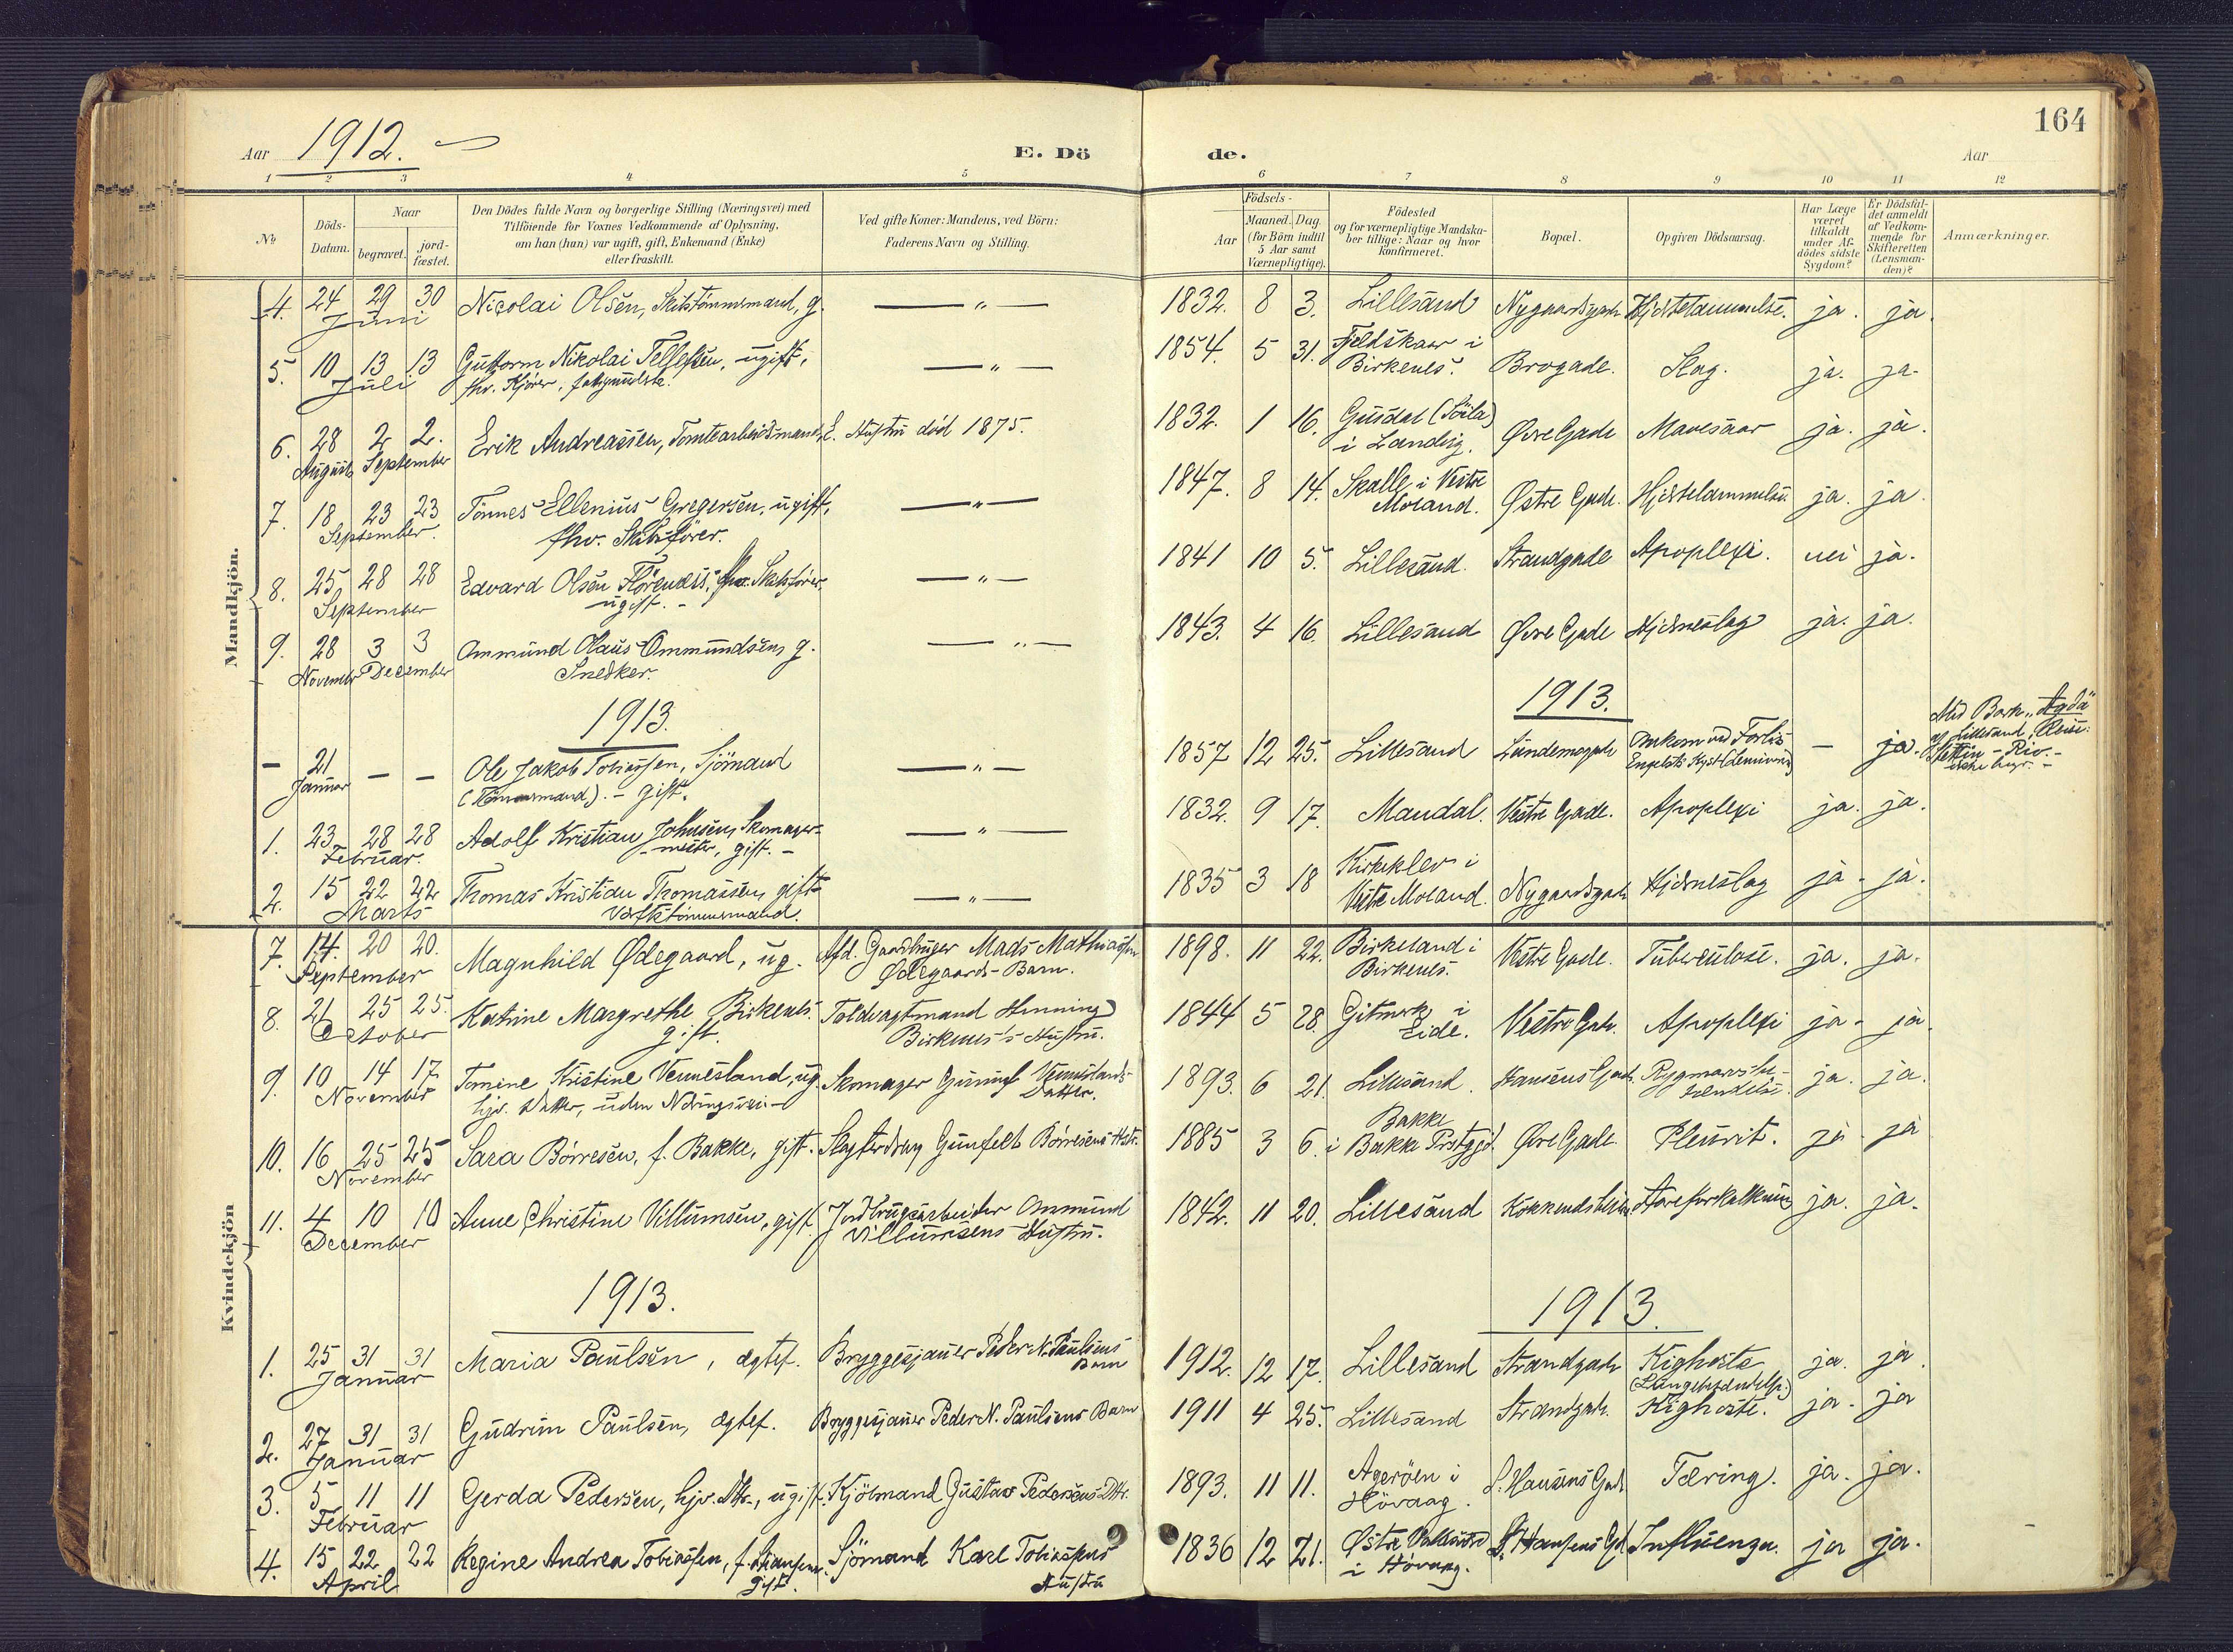 164
Aar 1912.
E. Döde.
Aar
1 2 3 4 5 6 7 8 9 10 11 12
No.
Döds-Datum.
Naar
begravet.
jord-fæstet.
Den Dödes fulde Navn og borgerlige Stilling (Næringsvei) med
Tilföiende for Voxnes Vedkommende af Oplysning,
om han (hun) var ugift, gift, Enkemand (Enke)
eller fraskilt.
Ved gifte Koner: Mandens, ved Börn:
Faderens Navn og Stilling.
Födsels-
Aar
Maaned. Dag.
(for Börn indtil
5 Aar samt
Værnepligtige).
Födested
og for værnepligtige Mandska-
ber tillige: Naar og hvor
konfirmeret.
Bopæl.
Opgiven Dödsaarsag.
Har Læge
været
tilkaldt
under Af-
dödes sidste
Sygdom?
Er Dödsfal-
det anmeldt
af Vedkom-
mende for
Skifteretten
(Lensman-
den)?
Anmærkninger.
Mandkjön.
4. 24 29 30 Nicolai Olsen, Skibstömmermand, g. — " — 1832. 8 3. Lillesand Nygaardsgade ja. ja.
Juni
5. 10 13 13 Guttorm Nikolai Tellefsen, ugift, — " — 1854. 5 31. Fjeldskaar i Brogade. Slag. ja. ja.
Juli fhv. Kjörer, Birkenes.
6. 28 2 2. Erik Andreassen, Tomtearbeidsmand, E. Hustru död 1875. 1832. 1 16. Øvre Gade Mavesaar ja. ja.
August September i Landvig.
7. 18 23 23 Tönnes Ellenius Gregersen, ugift, — " — 1847. 8 14. Skalle i Vestre Østre Gade. ja. ja.
September. fhv. Skibsförer. Moland.
8. 25 28 28 Edvard Olsen Florenæss, fhv. Skibsförer, — " — 1841 10 5. Lillesand. Strandgade Apoplexi. nei ja.
September ugift.
9. 28 3 3 Ommund Olaus Ommundsen, g. — " — 1843. 4 16 Lillesand Øvre Gade Hjerneslag ja. ja.
November December Snedker.
1913.
1913.
— 21 — — Ole Jakob Tobiassen, Sjömand — " — 1857 12 25. Lillesand Omkom ved Forlis — ja. Med Bark "Agda"
Januar (Tömmermand). - gift. af Lillesand
1. 23 28 28 Adolf Kristian Johnsen, Skomager- — " — 1832. 9 17. Mandal. Vestre Gade. Apoplexi ja. ja.
Februar. mester, gift.
2. 15 22 22 Thomas Kristian Thomassen, gift — " — 1835 3 18 Kirkeklev i Nygaardsgade Hjerneslag ja. ja.
Marts Værftstömmermand. Vestre Moland.
Kvindekjön
7. 14. 20 20. Magnhild Ødegaard, ug. Afd. Gaardbruger Mads Mathiassen 1898. 11 22. Birkeland i Vestre Gade. Tuberculose. ja. ja.
September Ødegaards-Barn. Birkenes.
8. 21 25 25. Katrine Margrethe Birkenes. Toldvagtmand Henning 1844 5 28. Gitmark i Vestre Gade. Apoplexi ja. ja.
October gift. Birkenes's Hustru. Eide.
9. 10 14 17 Tomine Kristine Vennesland, ug. Skomager Gunuf Venneslands- 1893. 6 21. Lillesand. Hansens Gade. ja. ja.
November hjv. Datter, uden Næringsvei Datter.
10. 16 25 25 Sara Börresen, f. Bakke, gift. Slagterdreng Gunfelt Börresens Hstr. 1885 3 6. Bakke Øvre Gade Pleurit. ja ja
November i Bakke Prstgjd.
11. 4 10 10 Anne Christine Villumsen, gift. Jordbrugsarbeider Ommund 1842. 11 20. Lillesand Aareforkalkning ja. ja.
December Villumsens Hustru.
1913.
1913.
1. 25 31 31 Maria Paulsen, ægtef. Bryggesjauer Peder N. Paulsens 1912. 12 17. Lillesand Strandgade Kighoste ja. ja.
Januar Barn
2. 27 31 31 Gudrun Paulsen, ægtef. Bryggesjauer Peder N. Paulsens Barn 1911 4 25. Lillesand Strandgade. Kighoste. ja. ja
Januar
3. 5 11 11 Gerda Pedersen, hjv. Dtr., ugift. Kjölmand Gustav Pedersens Dtr. 1893. 11 11. Agerøen i S. Hansens Gade Tæring. ja. ja.
Februar Hövaag.
4. 15 22 22 Regine Andrea Tobiassen, Sjömand Karl Tobiassens 1836 12 21. Østre Vallesværd Influenza. ja ja.
April gift. Hustru i Hövaag.